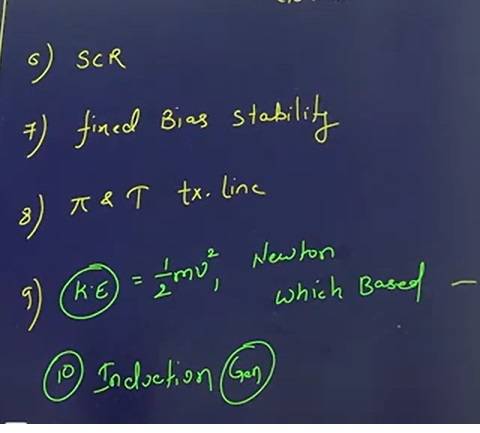 6) SCR
7) fined Bias stability
8) π & T tx. line
9) K.E = 1/2 mv², Newton
which Based –
10 Induction Gen